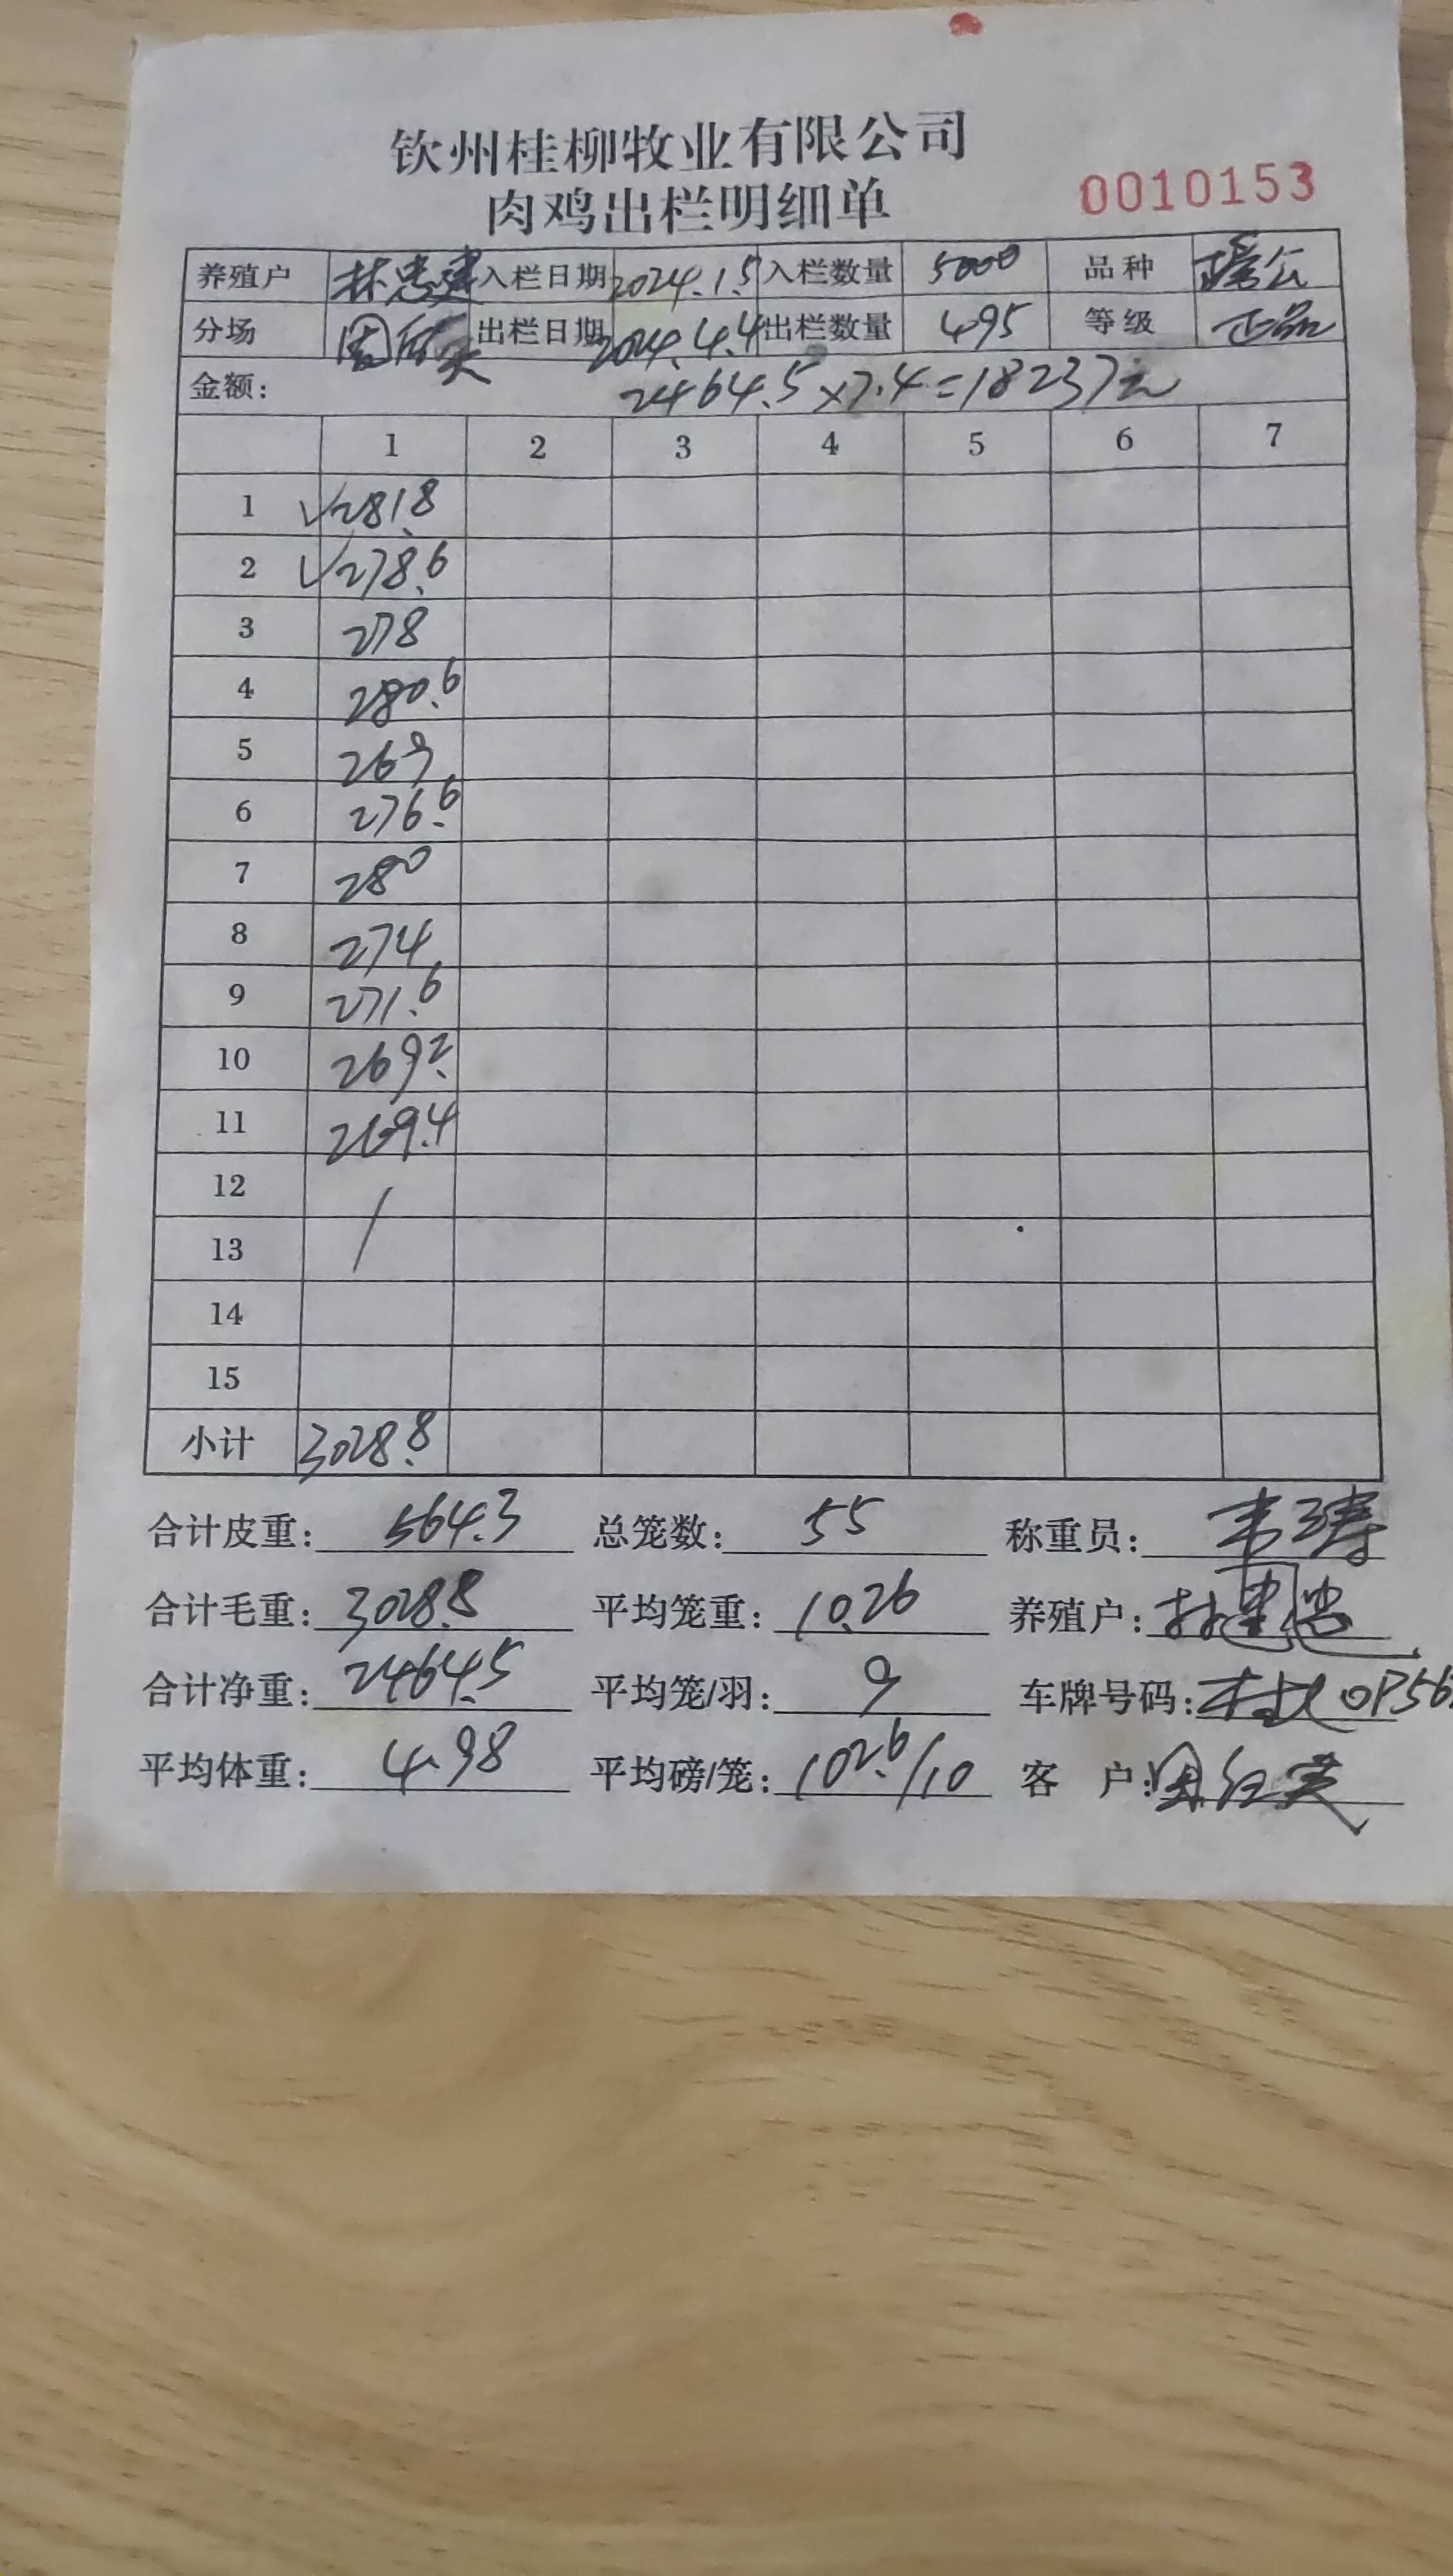 钦州桂柳牧业有限公司
肉鸡出栏明细单
0010153
养殖户 林忠建 入栏日期 2024.1.5 入栏数量 5000 品种
分场 出栏日期 2024.4.4 出栏数量 495 等级 正品
金额: 2464.5×7.4=18237元
1 2 3 4 5 6 7
1 √281.8
2 √278.6
3 278
4 280.6
5 269
6 276.6
7 280
8 274
9 271.6
10 269.2
11 269.4
12 /
13
14
15
小计 3028.8
合计皮重: 564.3 总笼数: 55 称重员:
合计毛重: 3028.8 平均笼重: 10.26 养殖户: 林建忠
合计净重: 2464.5 平均笼/羽: 9 车牌号码: 桂 0P56
平均体重: 4.98 平均磅/笼: 102.6/10 客 户: 周红英